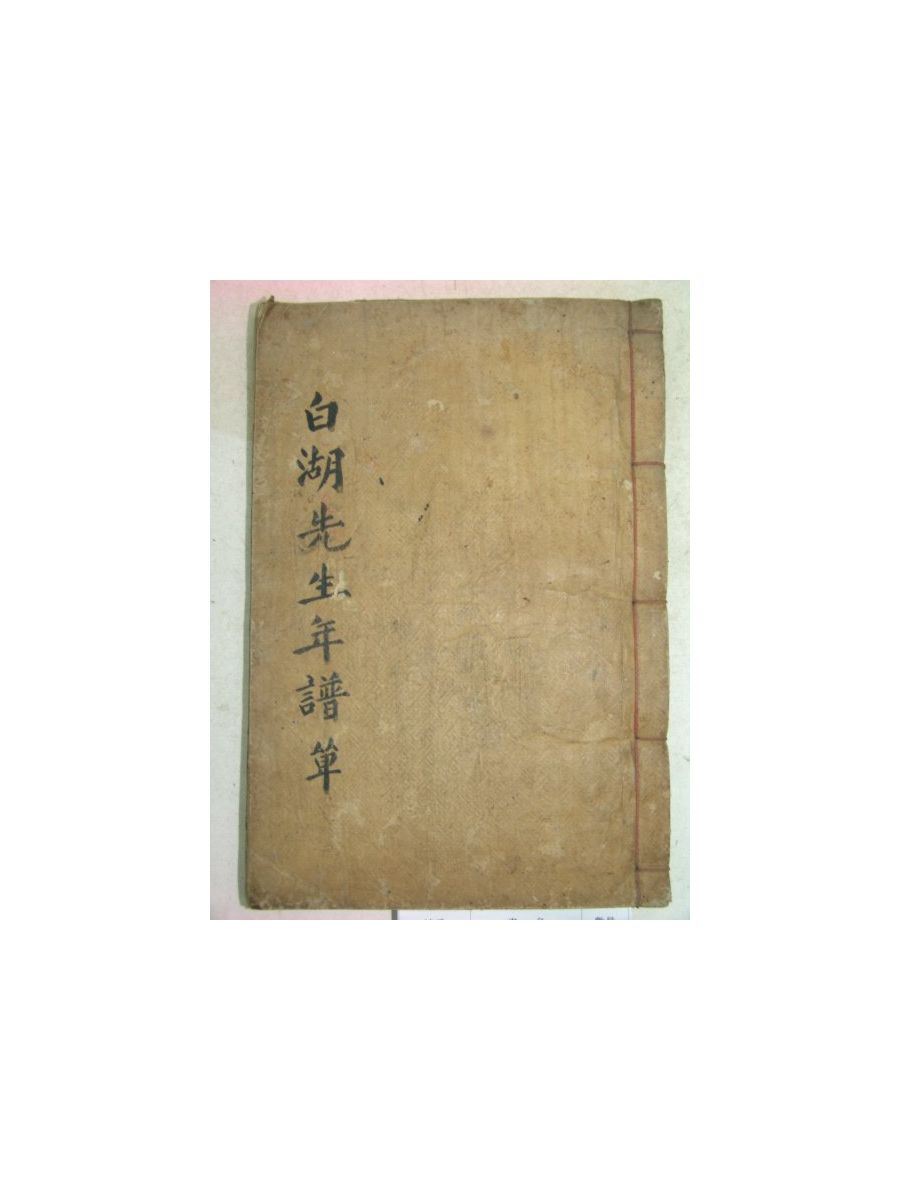 白湖先生年譜草